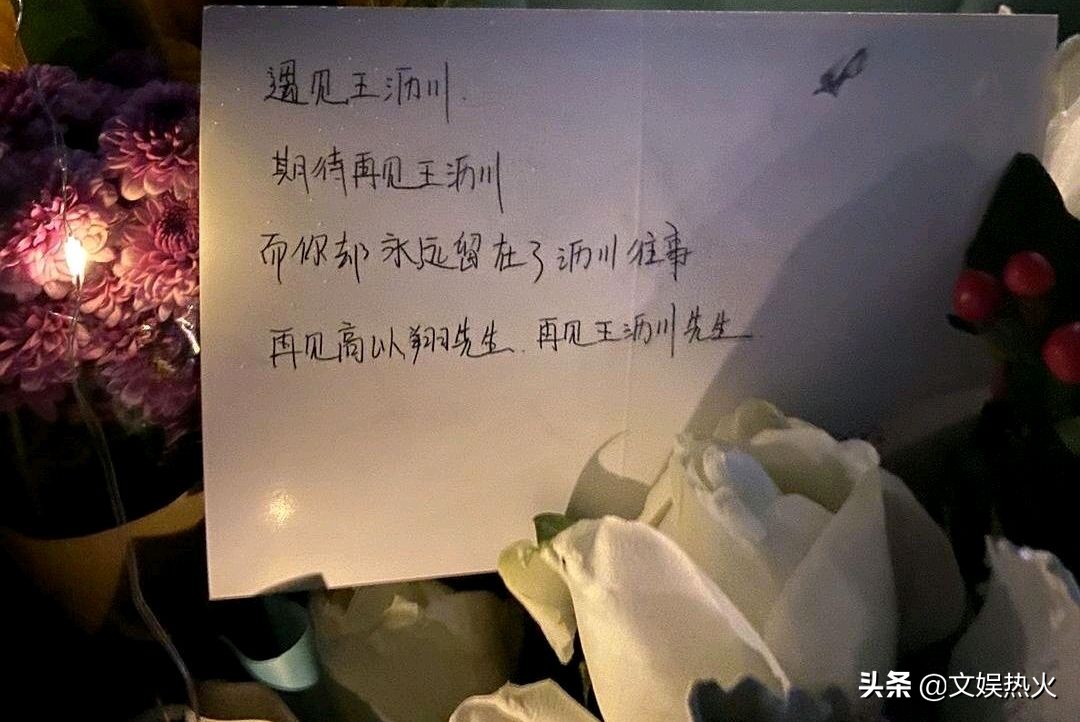 遇见王沥川.
期待再见王沥川
而你却永远留在了沥川往事
再见高以翔先生.再见王沥川先生.
头条 @文娱热火